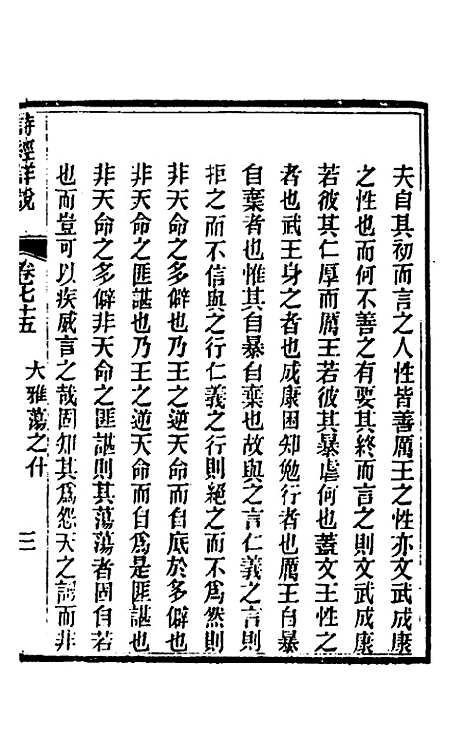 夫自其初而言之人性皆善厲王之性亦文武成康
之性也而何不善之有要其終而言之則文武成康
若彼其仁厚而厲王若彼其暴虐何也蓋文王性之
者也武王身之者也成康困知勉行者也厲王自暴
自棄者也惟其自暴自棄也故與之言仁義之言則
拒之而不信與之行仁義之行則絕之而不為然則
非天命之多僻也乃王之逆天命而自底於多僻也
非天命之匪諶也乃王之逆天命而自為是匪諶也
非天命之多僻非天命之匪諶則其蕩蕩者固自若
也而豈可以疾威言之哉固知其為怨天之謌而非
詩經詳說
卷七十五
大雅蕩之什
三